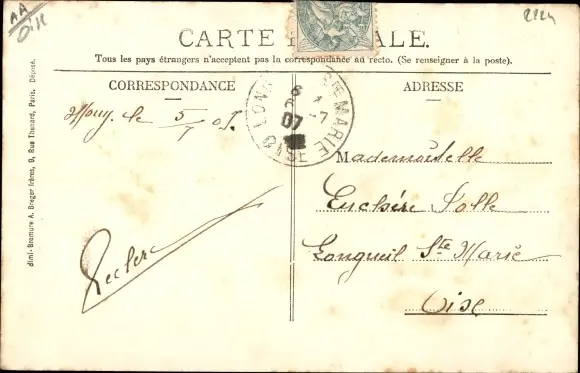 AA
Oise
2124
CARTE POSTALE.
Tous les pays étrangers n'acceptent pas la correspondance au recto. (Se renseigner à la poste).
CORRESPONDANCE
ADRESSE
Mouy. le 5/7 07.
6
7-7
07
STE MARIE
OISE
Mademoiselle
Euchère Solle
Longueil Ste Marie
Oise
Leclerc
dimi-Bromure A. Breger frères, 9, Rue Thenard, Paris. Déposé.